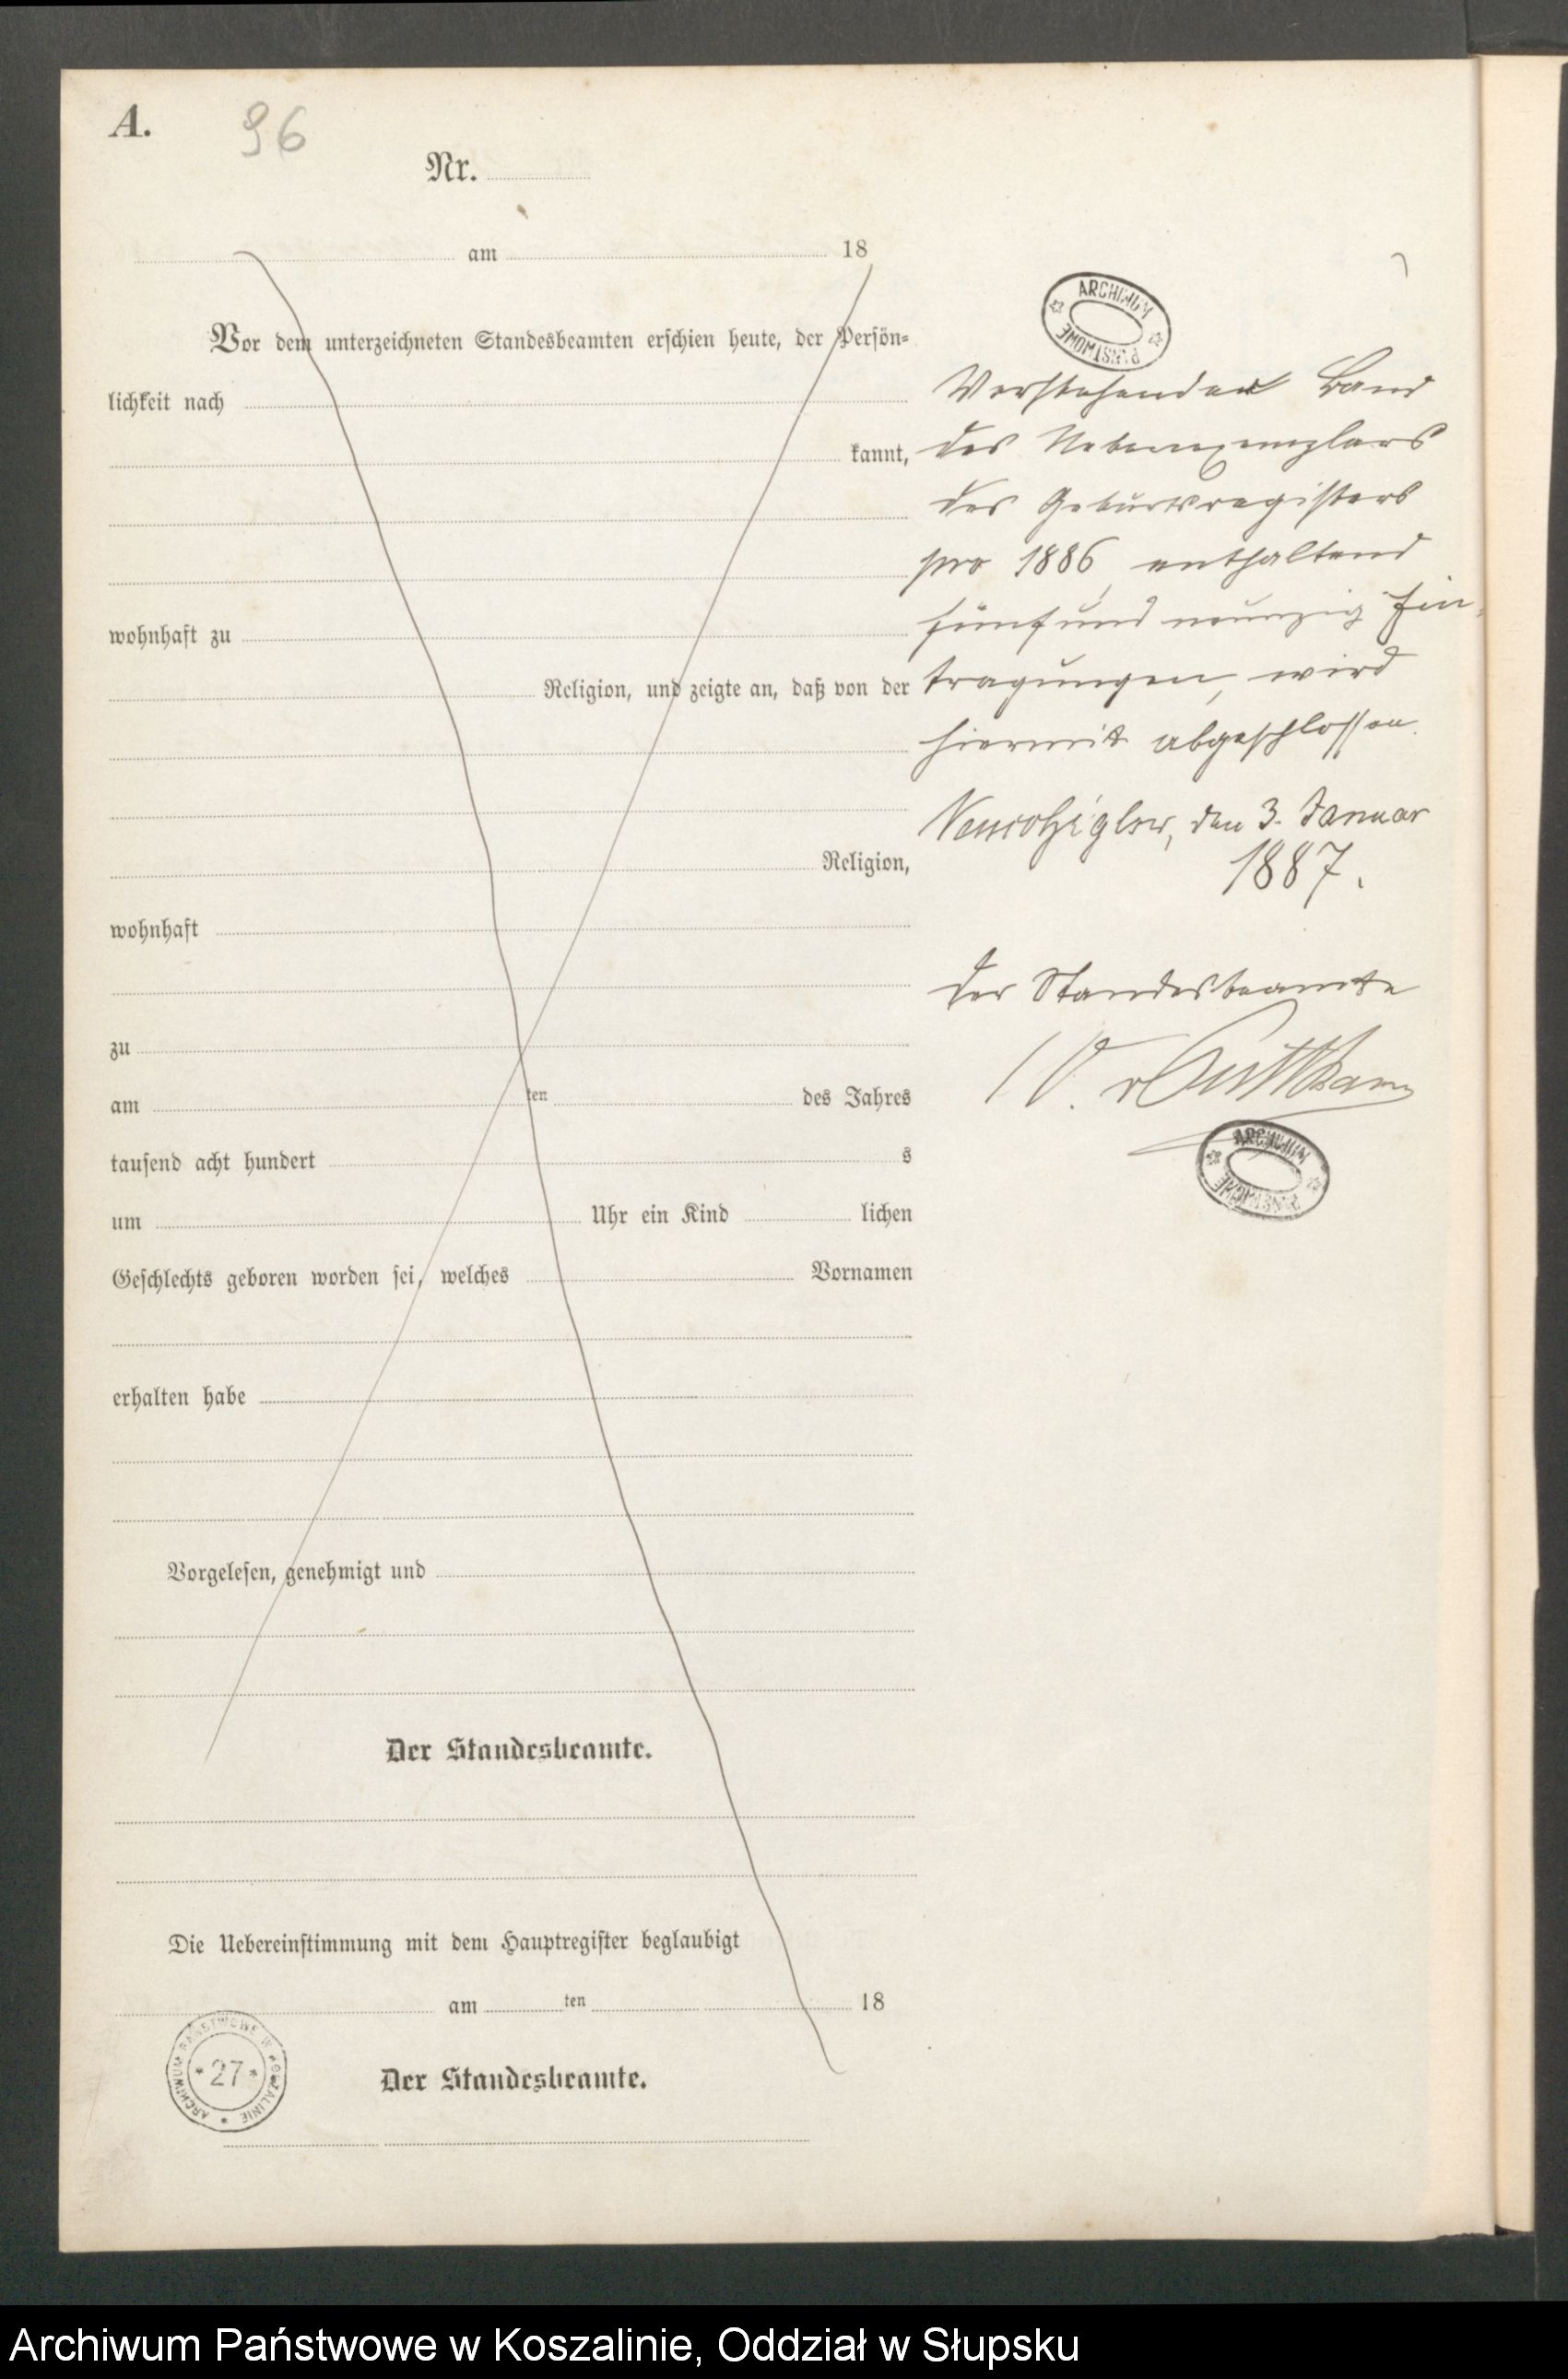 A.
96
Nr.
am 18
Vor dem unterzeichneten Standesbeamten erschien heute, der Persön-
lichkeit nach
kannt,
wohnhaft zu
Religion, und zeigte an, daß von der
Religion,
wohnhaft
zu
am ten des Jahres
tausend acht hundert s
um Uhr ein Kind lichen
Geschlechts geboren worden sei, welches Vornamen
erhalten habe
Vorgelesen, genehmigt und
Der Standesbeamte.
Die Uebereinstimmung mit dem Hauptregister beglaubigt
am ten 18
Der Standesbeamte.
ARCHIWUM PAŃSTWOWE W KOSZALINIE
* 27 *
ARCHIWUM
PAŃSTWOWE
Vorstehender Band
des Nebenexemplars
des Geburtsregisters
pro 1886, enthaltend
fünfundneunzig Ein-
tragungen, wird
hiermit abgeschlossen.
den 3. Januar
1887.
Der Standesbeamte
I V. v Puttkamer
ARCHIWUM
PAŃSTWOWE
Archiwum Państwowe w Koszalinie, Oddział w Słupsku